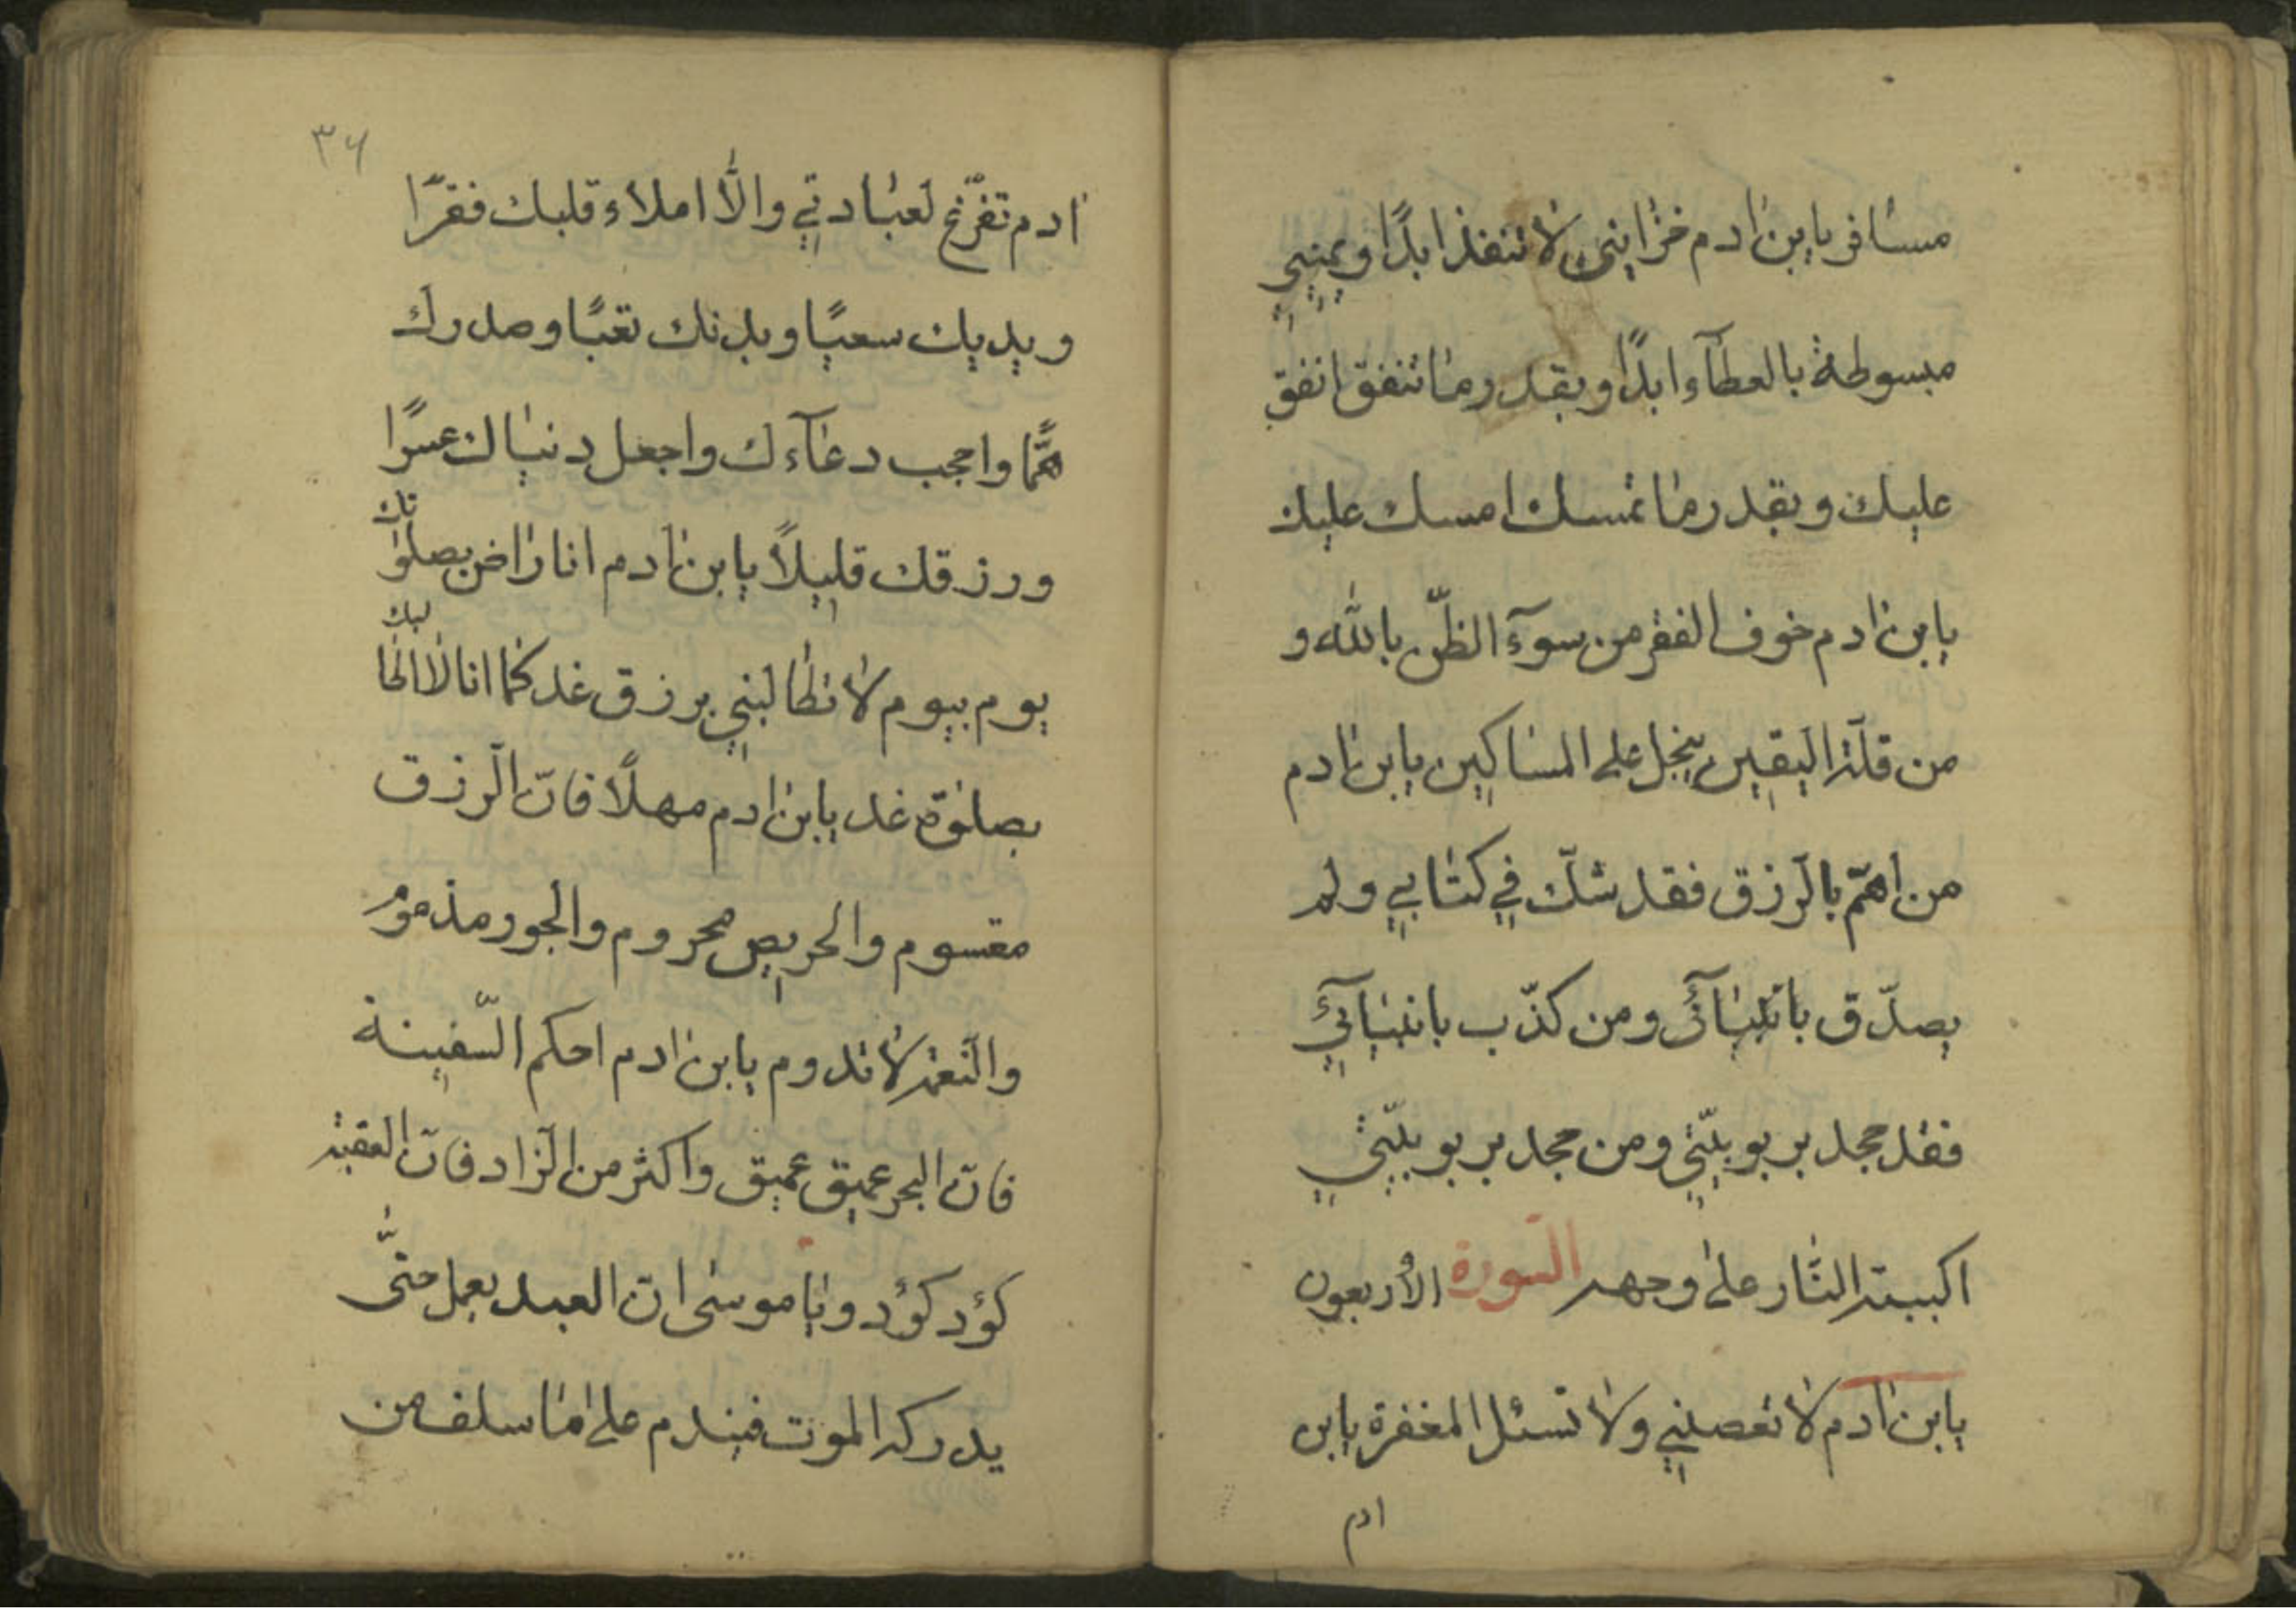 مسافر يابن ادم خزايني لا تنفذ ابدًا و يميني
مبسوطة بالعطآء ابدًا و بقدر ما تنفق انفق
عليك و بقدر ما تمسك امسك عليك
يابن ادم خوف الفقر من سوٓء الظنّ بالله و
من قلّة اليقين يبخل على المساكين يابن ادم
من اهتمّ بالرّزق فقد شكّ في كتابي و لم
يصدّق بانبيآئي و من كذّب بانبيآئي
فقد جحد بربوبيّتي و من جحد بربوبيّتي
اكببته النّار على وجهه السّورة الأربعون
يابن ادم لا تعصيني و لا تسئل المغفرة يابن
ادم
٣٦
ادم تفرّغ لعبادتي و الّا املاء قلبك فقرًا
و يديك سعيًا و بدنك تعبًا و صدرك
همًّا و احجب دعآءك و اجعل دنياك عسرًا
و رزقك قليلًا يابن ادم انا راض بصلواتك
يوم بيوم لا تطالبني برزق غد كما انا لا اطالبك
بصلوة غد يابن ادم مهلًا فانّ الرّزق
مقسوم و الحريص محروم و الجور مذموم
و النّعمة لا تدوم يابن ادم احكم السّفينة
فانّ البحر عميق عميق و اكثر من الزّاد فانّ العقبة
كؤد كؤد و يا موسى انّ العبد يعمل حتّى
يدركه الموت فيندم على ما سلف من